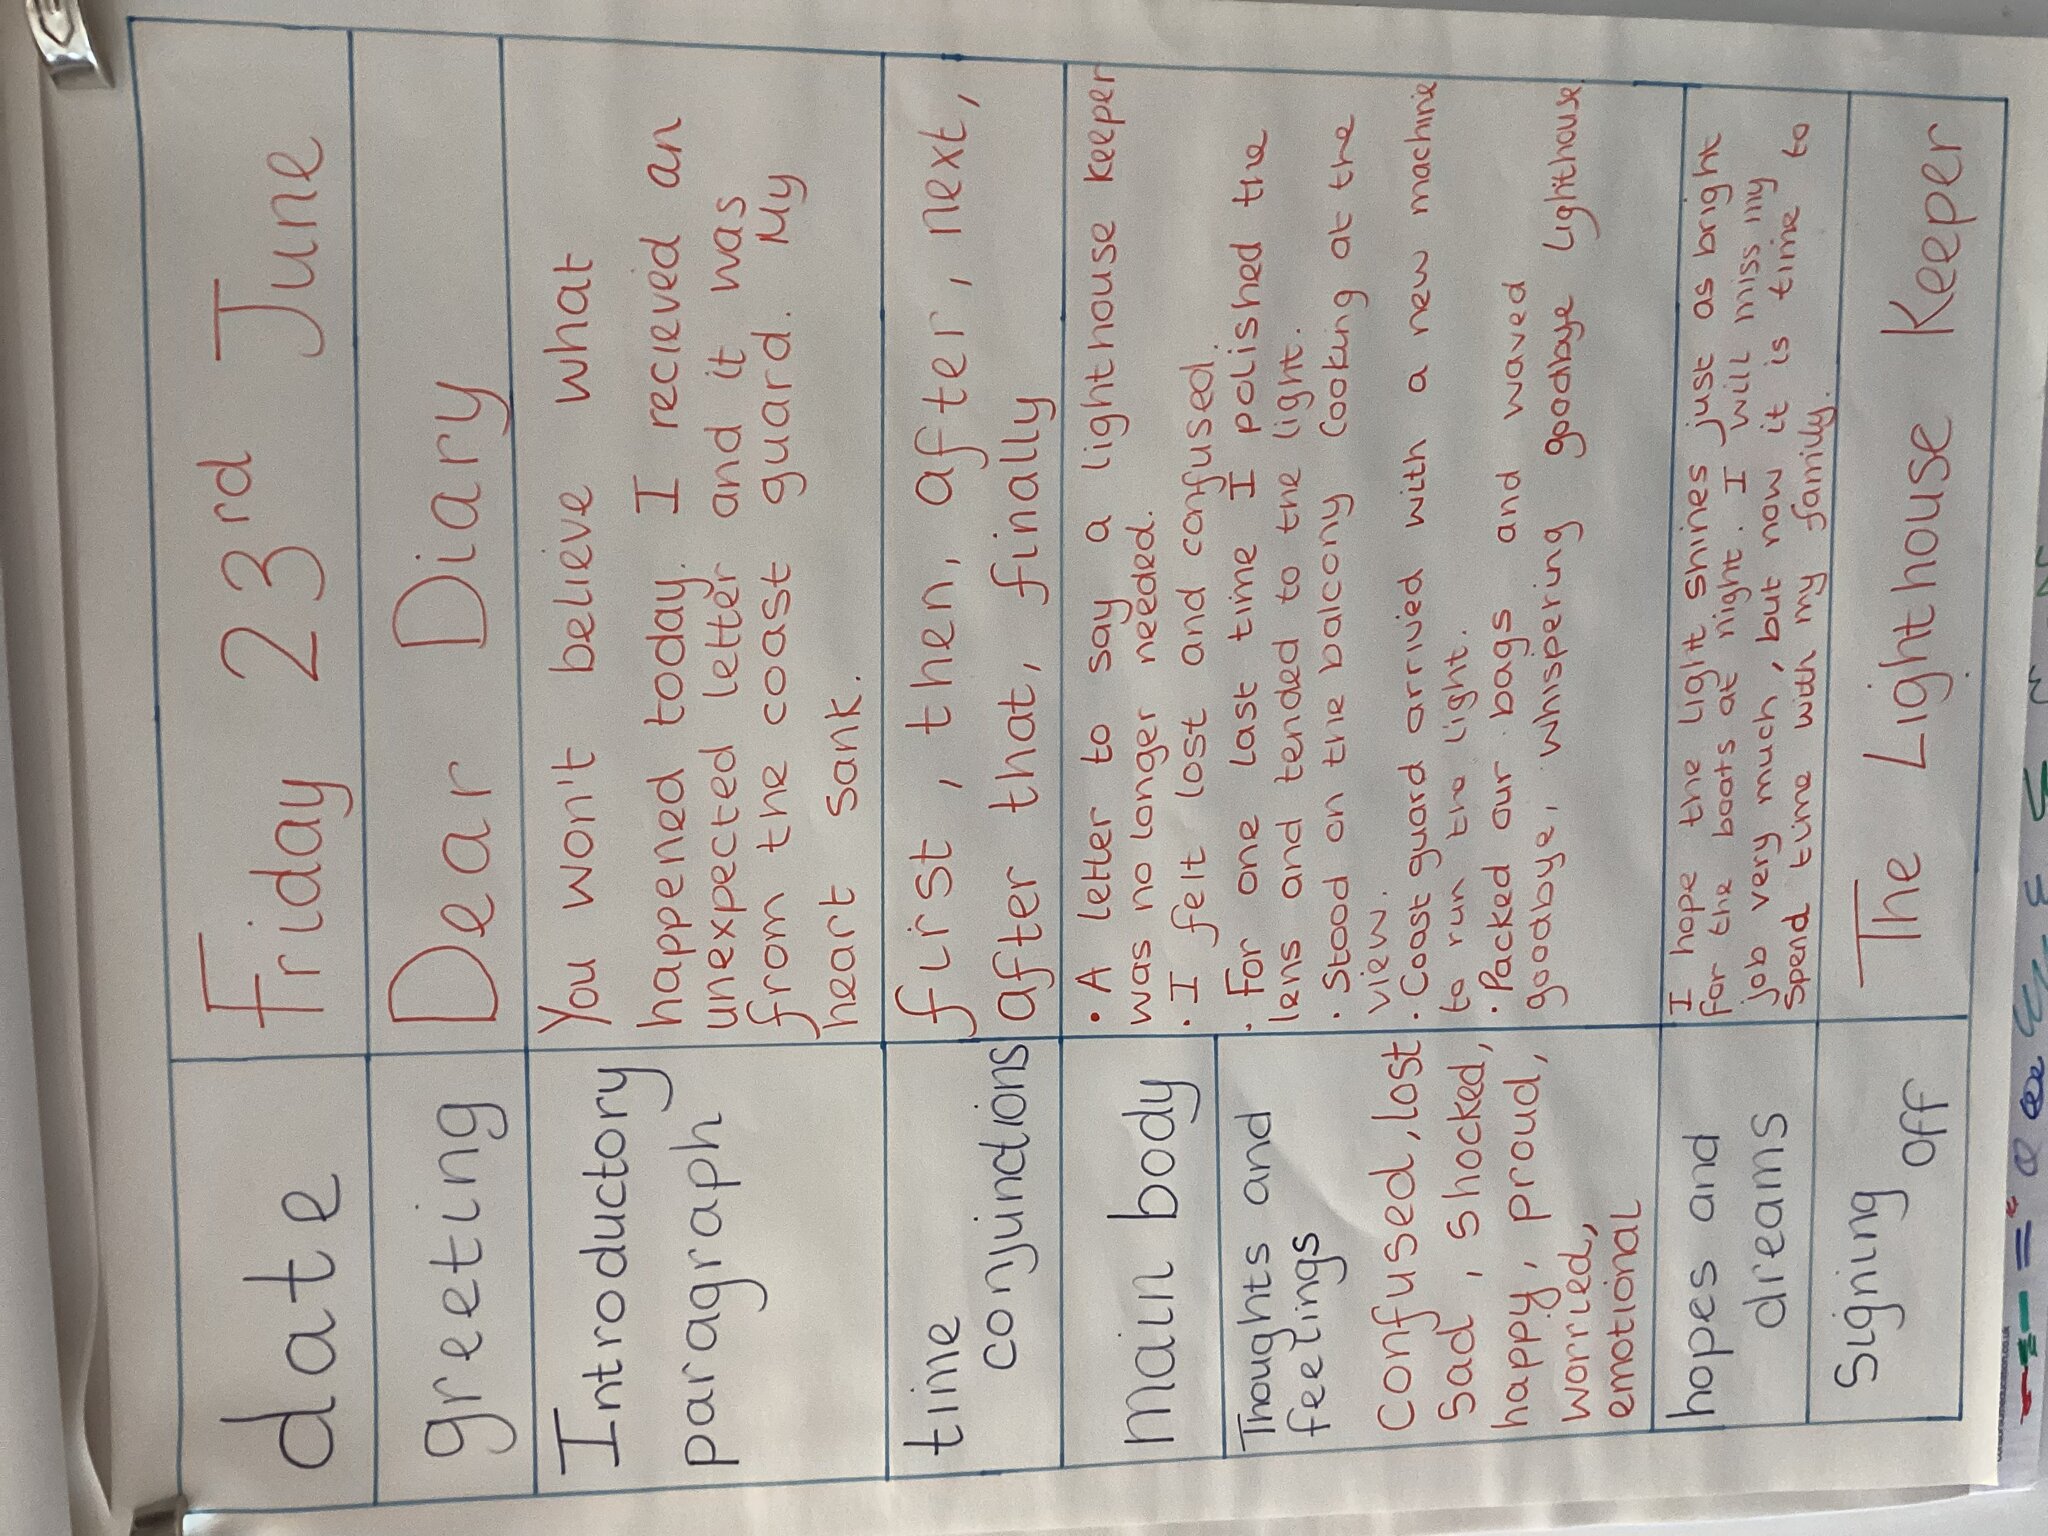 date
Friday 23rd June
greeting
Dear Diary
Introductory
paragraph
You won't believe what
happened today. I recieved an
unexpected letter and it was
from the coast guard. My
heart sank.
time
conjunctions
first, then, after, next,
after that, finally
main body
• A letter to say a lighthouse keeper
was no longer needed.
• I felt lost and confused.
• For one last time I polished the
lens and tended to the light.
• Stood on the balcony looking at the
view.
• Coast guard arrived with a new machine
to run the light.
• Packed our bags and waved
goodbye, whispering goodbye lighthouse.
Thoughts and
feelings
confused, lost
sad, shocked,
happy, proud,
worried,
emotional
hopes and
dreams
I hope the light shines just as bright
for the boats at night. I will miss my
job very much, but now it is time to
spend time with my family.
Signing
off
The Lighthouse Keeper